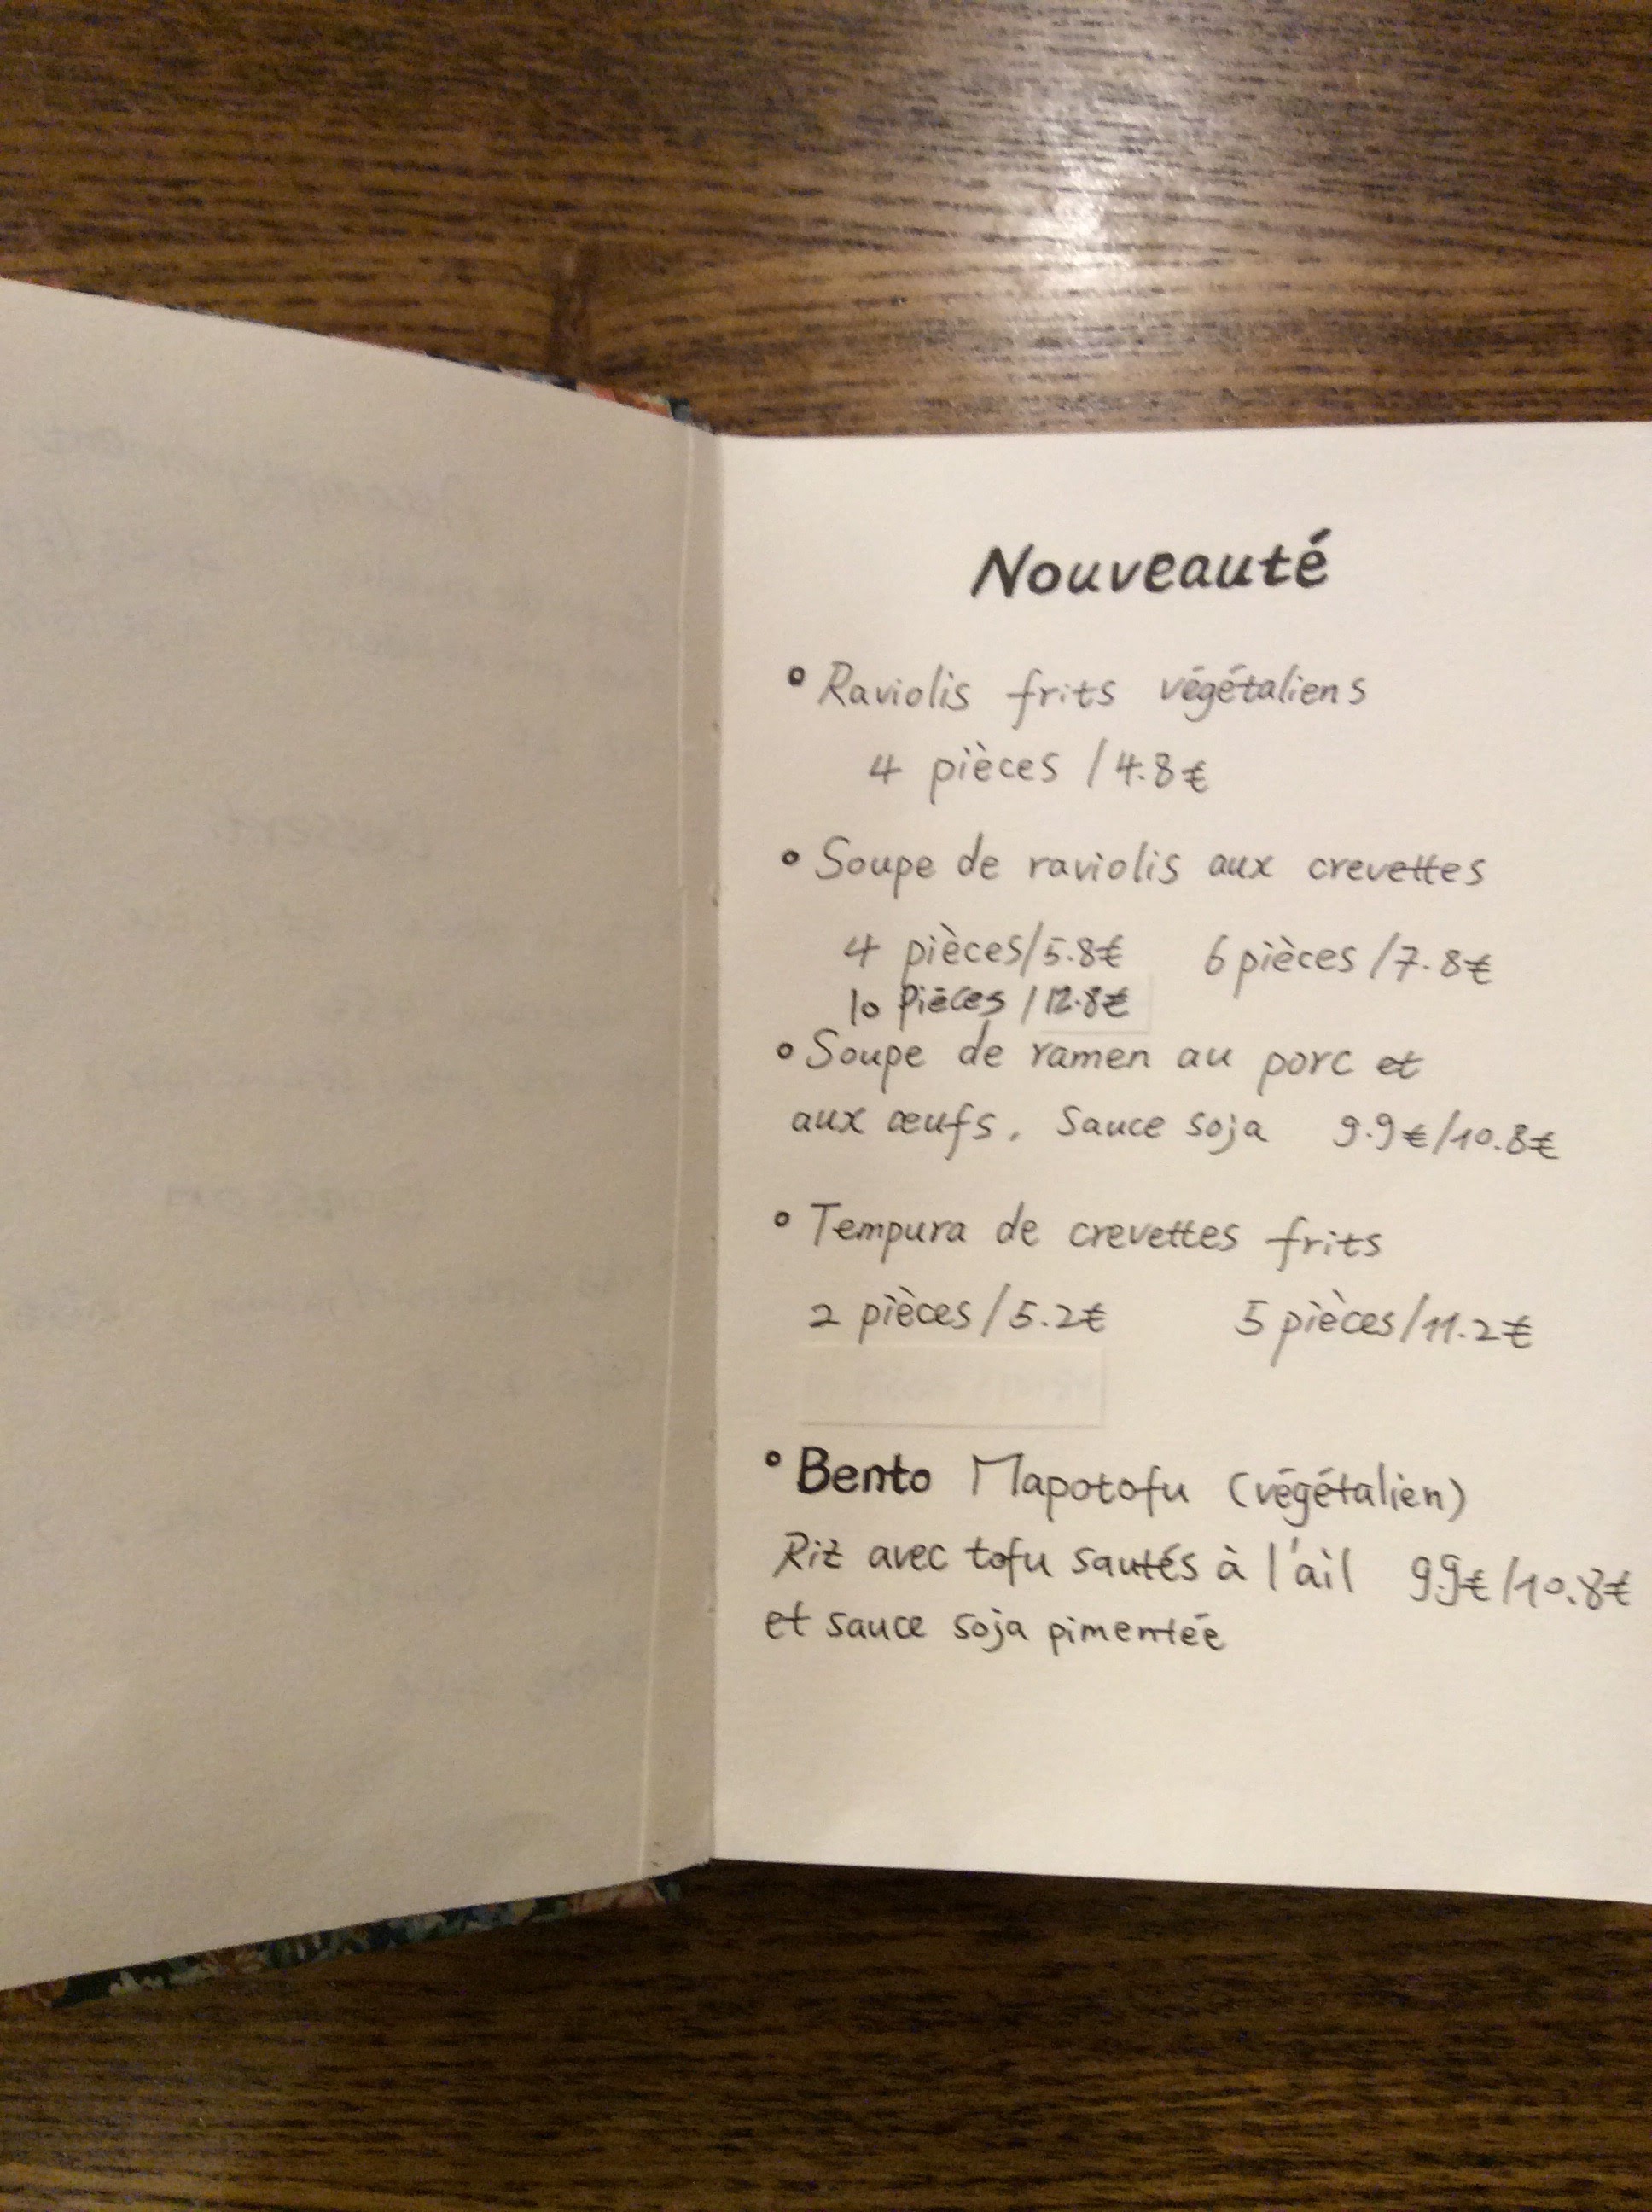 Nouveauté
° Raviolis frits végétaliens
4 pièces / 4.8€
° Soupe de raviolis aux crevettes
4 pièces/5.8€ 6 pièces /7.8€
10 pièces /12.8€
° Soupe de ramen au porc et
aux œufs. Sauce soja 9.9€/10.8€
° Tempura de crevettes frits
2 pièces/5.2€ 5 pièces/11.2€
° Bento Mapotofu (végétalien)
Riz avec tofu sautés à l'ail 9.9€/10.8€
et sauce soja pimentée